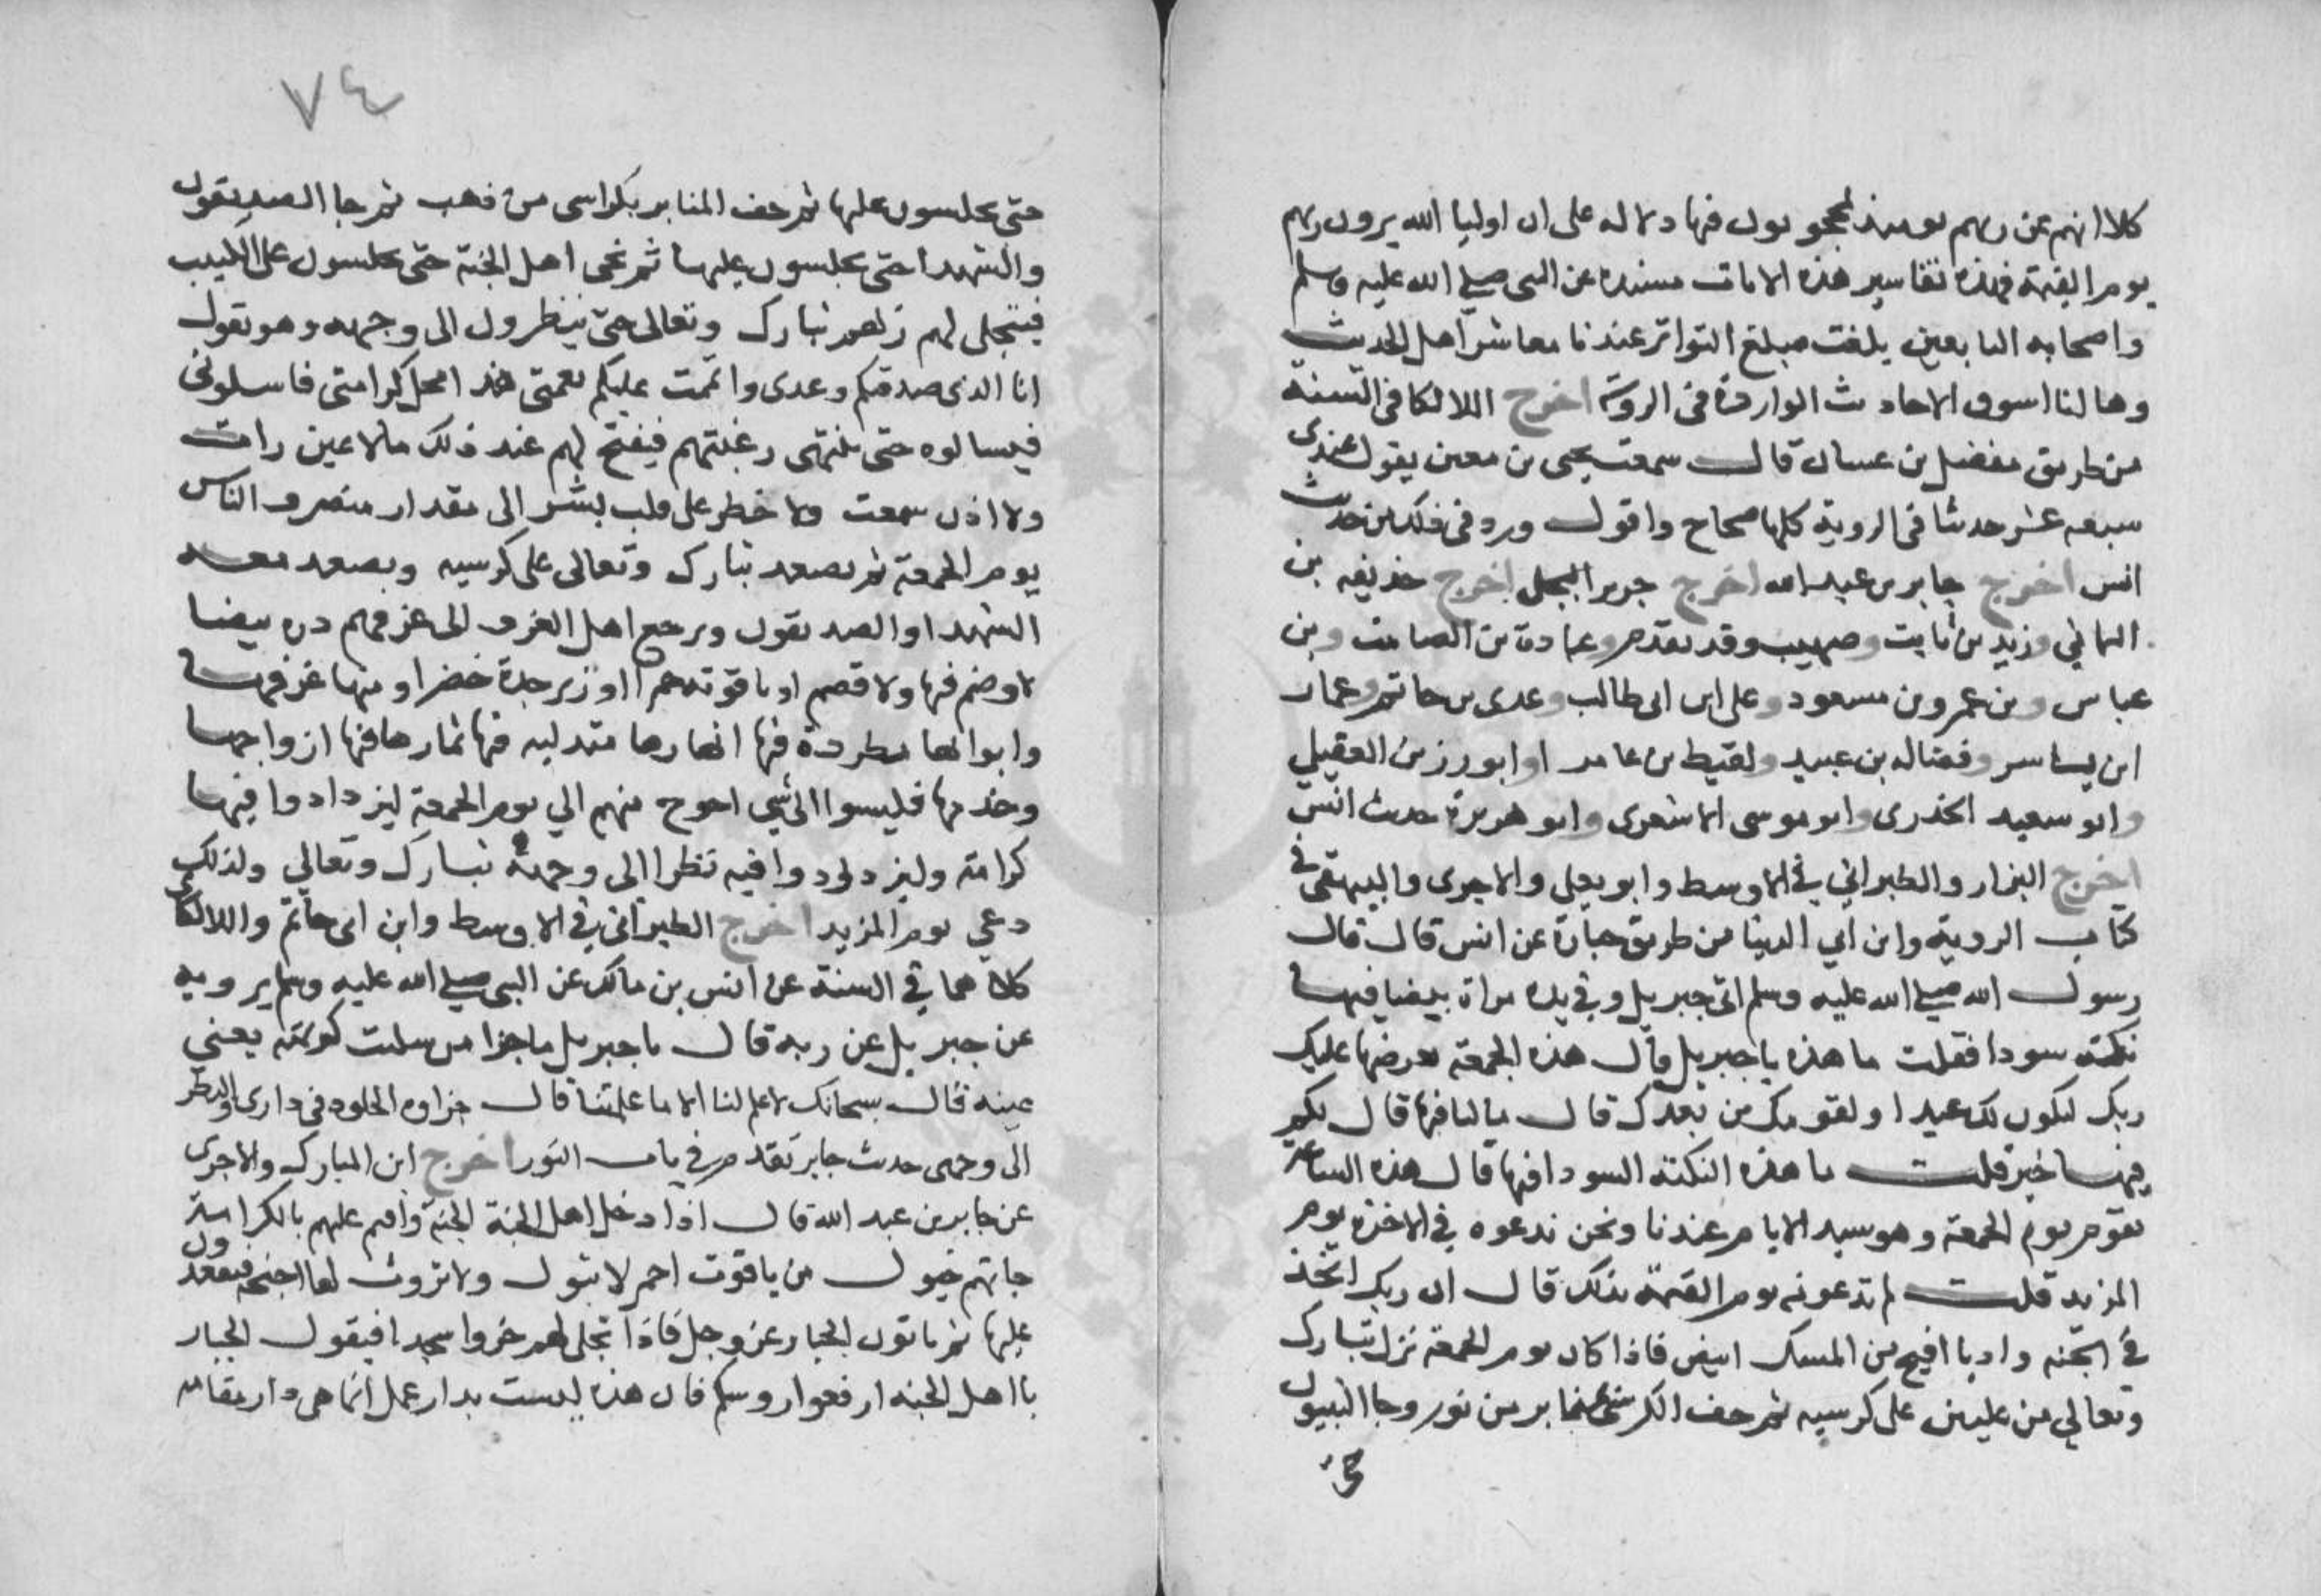 كلا انهم عن ربهم يومئذ لمحجوبون فيها دلاله على ان اوليا الله يرون ربهم
يوم القيمة فهذه تفاسير هذه الايات مسنده عن النبى صلى الله عليه وسلم
واصحابه التابعين بلغت مبلغ التواتر عندنا معاشر اهل الحديث
وها لنا اسوق الاحاديث الواردة فى الروية اخرج اللالكا فى السنة
من طريق مفضل بن غسان قال سمعت يحيى بن معين يقول عندى
سبعه عشر حديثا فى الروية كلها صحاح واقول ورد فى ذلك من حديث
انس اخرج جابر بن عبد الله اخرج جرير البجلى اخرج حذيفه بن
اليمانى وزيد بن ثابت وصهيب وقد تقدم وعبادة بن الصامت وبن
عباس وبن عمر وبن مسعود وعلى ابن ابى طالب وعدى بن حاتم وعمار
ابن ياسر وفضاله بن عبيد ولقيط بن عامر او ابورزين العقيلي
وابو سعيد الخدرى وابو موسى الاشعرى وابو هريرة حديث انس
اخرج البزار والطبراني في الاوسط وابو يعلى والاجرى والبيهقى في
كتاب الروية وابن ابي الدنيا من طريق عن انس قال قال
رسول الله صلى الله عليه وسلم اتى جبريل وفي يده مراة بيضا فيها
نكتة سودا فقلت ما هذه يا جبريل قال هذه الجمعة يعرضها عليك
ربك لتكون لك عيدا ولقومك من بعدك قال مالنا فيها قال لكم
فيها خير قلت ما هذه النكتة السودا فيها قال هذه الساعة
تقوم يوم الجمعة وهو سيد الايام عندنا ونحن ندعوه في الاخره يوم
المزيد قلت لم تدعونه يوم القيمة بذلك قال ان ربك اتخذ
في الجنه واديا افيح من المسك ابيض فاذا كان يوم الجمعة نزل تبارك
وتعالي من عليين على كرسيه ثم حف الكرسى بمنابر من نور وجا النبيون
حتى
٧٤
حتى يجلسون عليها ثم حف المنابر بكراسى من ذهب ثم جا الصديقون
والشهدا حتى يجلسون عليها ثم يجى اهل الجنة حتى يجلسون على الكثيب
فيتجلى لهم ربهم تبارك وتعالى حتى ينظرون الى وجهه وهو يقول
انا الذى صدقتكم وعدى واتممت عليكم نعمتى هذا محل كرامتى فاسلونى
فيسالوه حتى تنتهى رغبتهم فيفتح لهم عند ذلك مالا عين رات
ولا اذن سمعت ولا خطر على قلب بشر الى مقدار منصرف الناس
يوم الجمعة ثم يصعد تبارك وتعالى على كرسيه ويصعد معه
الشهدا والصديقون ويرجع اهل الغرف الى غرفهم دره بيضا
لا وصم فيها ولا قصم او ياقوته حمرا او زبرجدة خضرا ومنها غرفها
وابوابها مطردة فيها انهارها متدليه فيها ثمارها فيها ازواجها
وخدمها فليسوا الى شي احوج منهم الي يوم الجمعة ليزدادوا فيها
كرامة وليزدادوا فيه نظرا الى وجهه تبارك وتعالي ولذلك
دعي يوم المزيد اخرج الطبرانى في الاوسط وابن ابى حاتم واللالكائى
كلاهما في السنة عن انس بن مالك عن النبى صلى الله عليه وسلم يرويه
عن جبريل عن ربه قال يا جبريل ما جزا من سلبت كريمته يعني
عينيه قال سبحانك لا علم لنا الا ما علمتنا قال جزاوه الخلود فى دارى والنظر
الى وجهى حديث جابر تقدم في باب النور اخرج ابن المبارك والاجرى
عن جابر بن عبد الله قال اذا دخل اهل الجنة الجنة واديم عليهم بالكرامة
جاتهم خيول من ياقوت احمر لا تبول ولا تروث لها اجنحة فيقعدون
عليها ثم ياتون الجبار عز وجل فاذا تجلى لهم خروا سجدا فيقول الجبار
يا اهل الجنه ارفعوا روسكم فان هذه ليست بدار عمل انما هى دار مقامه